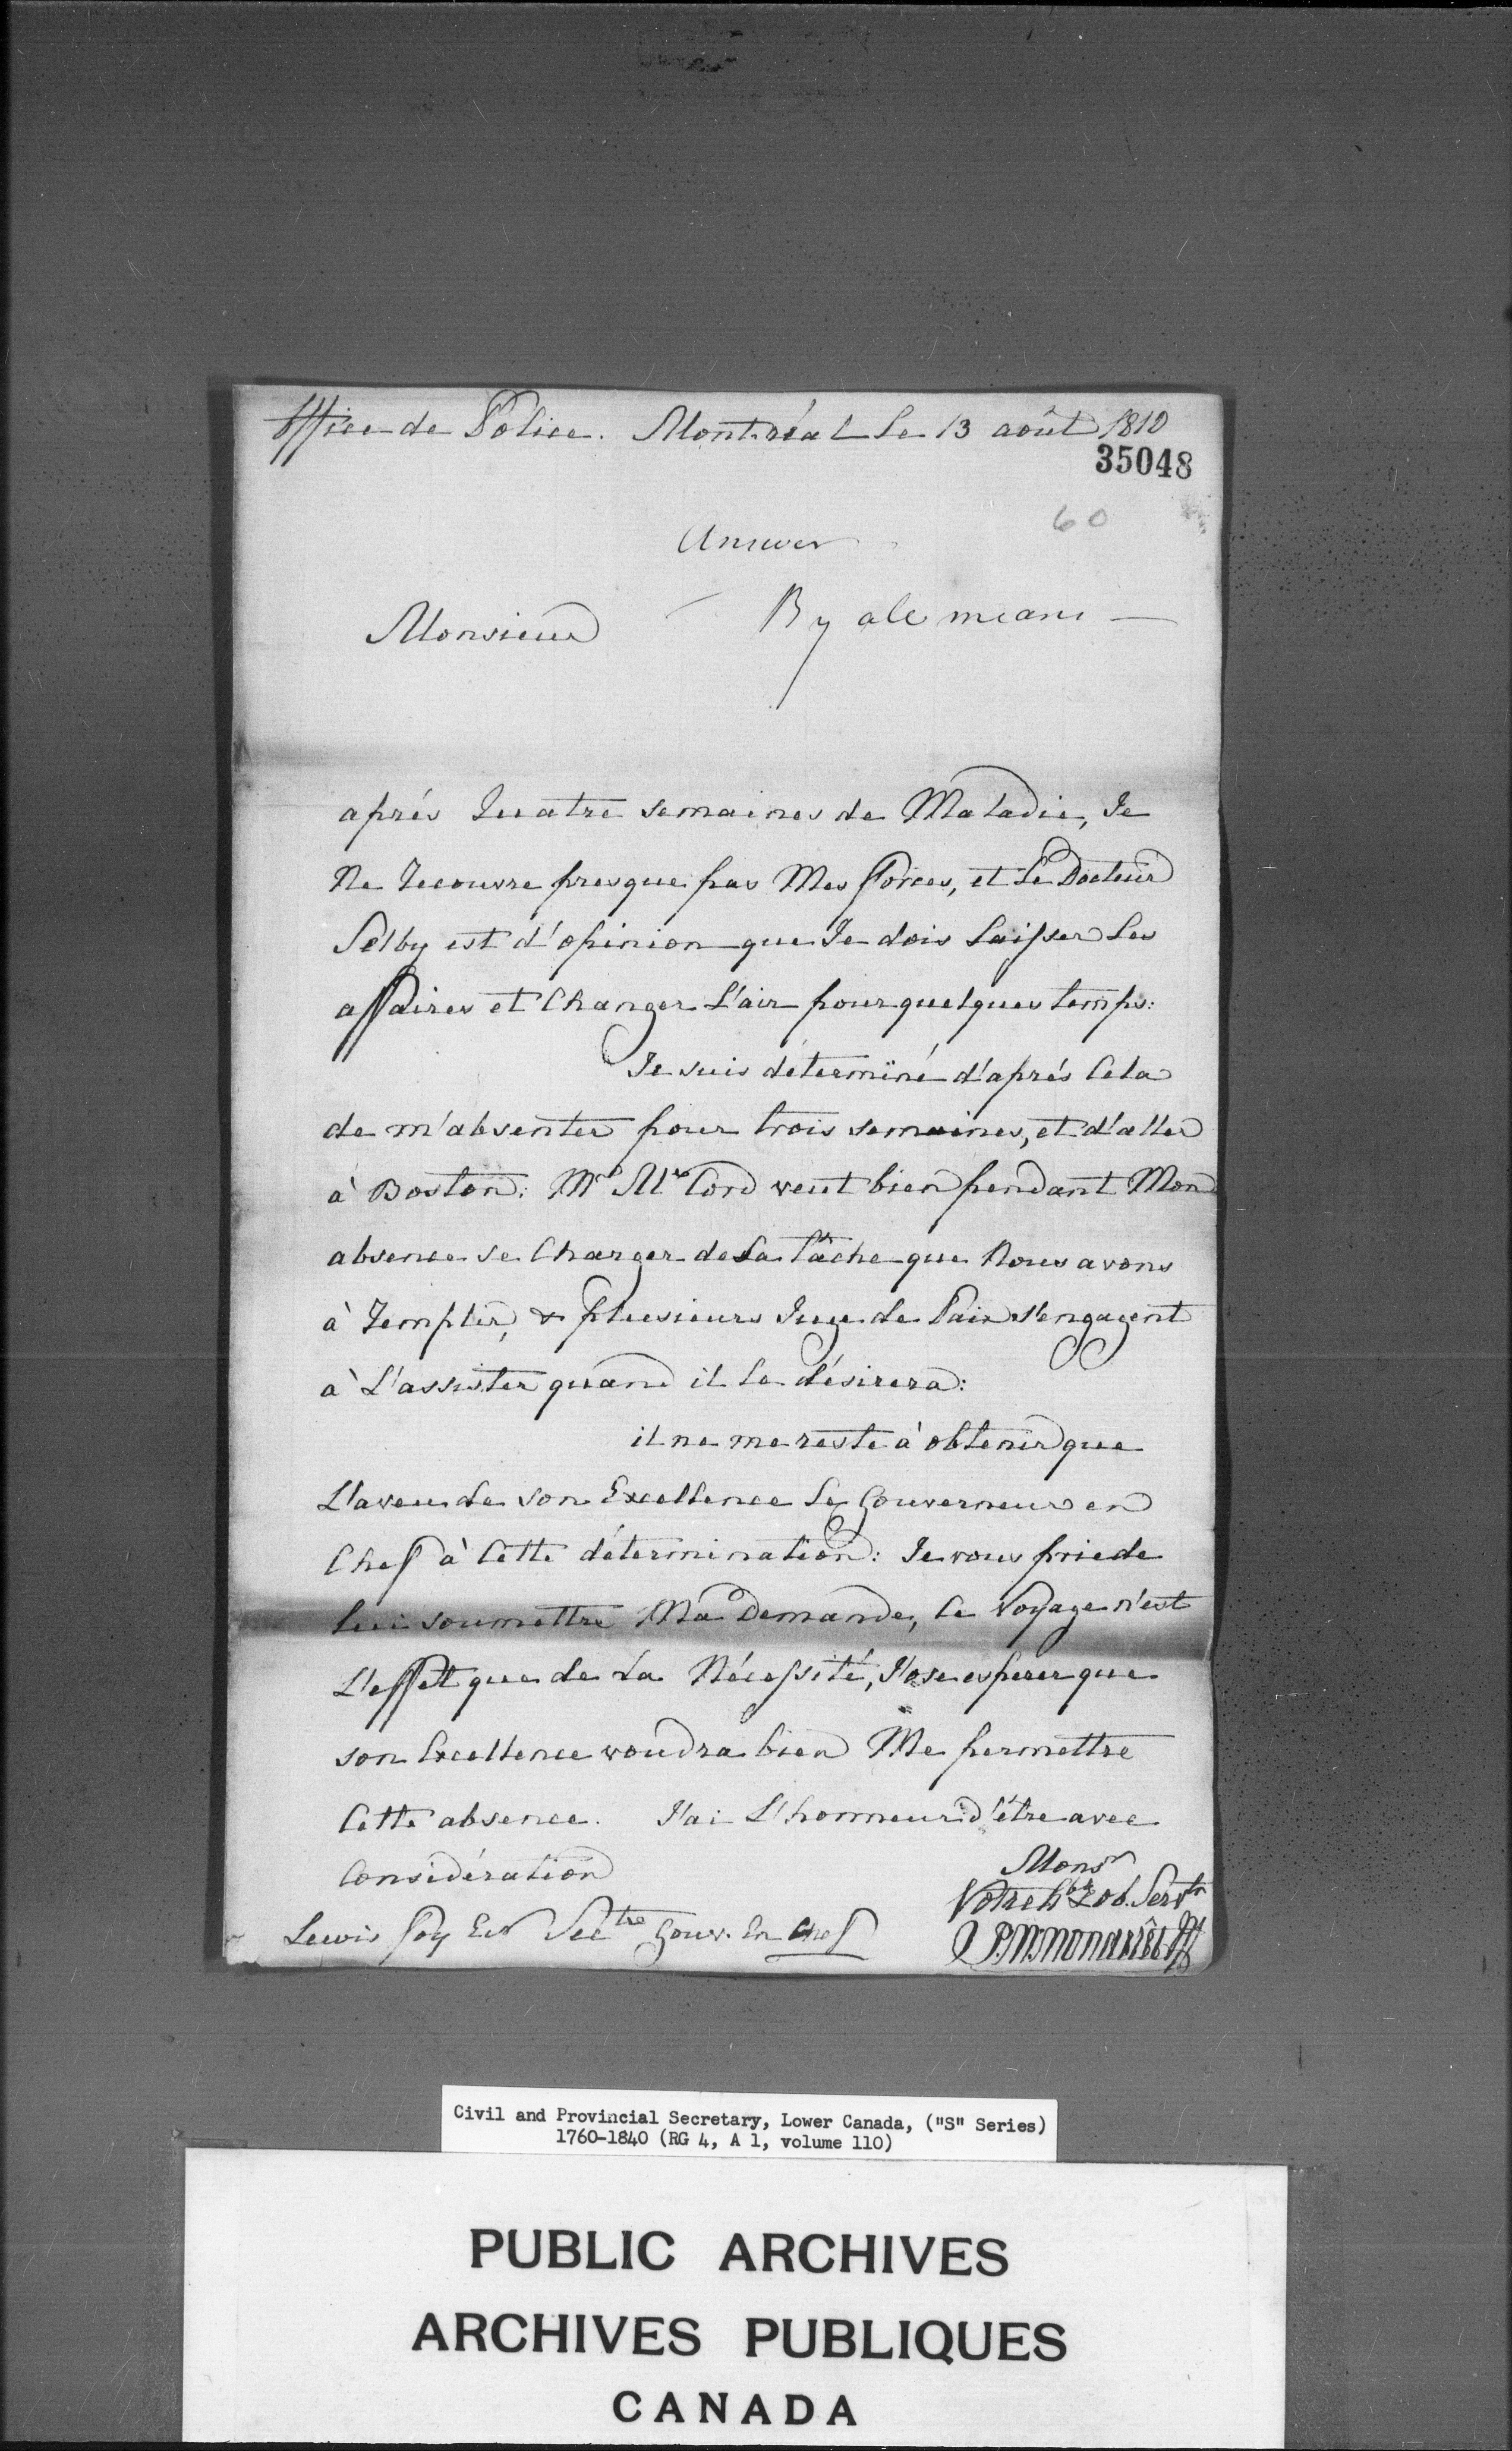 Office de Police. Montréal le 13 août 1810
35048
60
Answer
By all means —
Monsieur
après Quatre semaines de Maladie, Je
Ne Recouvre presque pas Mes forces, et Le Docteur
Selby est d'opinion que Je dois Laisser Les
affaires et Changer L'air pour quelques temps:
Je suis déterminé d'après Cela
de m'absenter pour trois semaines, et d'aller
à Boston: Mr McCord veut bien pendant Mon
absence se Charger de La tâche que Nous avons
à Remplir, & plusieurs Juge de Paix s'engagent
à L'assister quand il le désirera:
il ne me reste à obtenir que
L'aveu de son Excellence Le Gouverneur en
Chef à Cette détermination: Je vous prie de
lui soumettre Ma Demande, Ce Voyage n'est
L'effet que de La Nécessité, J'ose esperer que
son Excellence voudra bien Me permettre
Cette absence. J'ai L'honneur d'être avec
Considération
Monsr
Votre hble & ob. Servtr
Lewis Foy Ecr Sectre Gouv. En Chef
Civil and Provincial Secretary, Lower Canada, ("S" Series)
1760-1840 (RG 4, A 1, volume 110)
PUBLIC ARCHIVES
ARCHIVES PUBLIQUES
CANADA